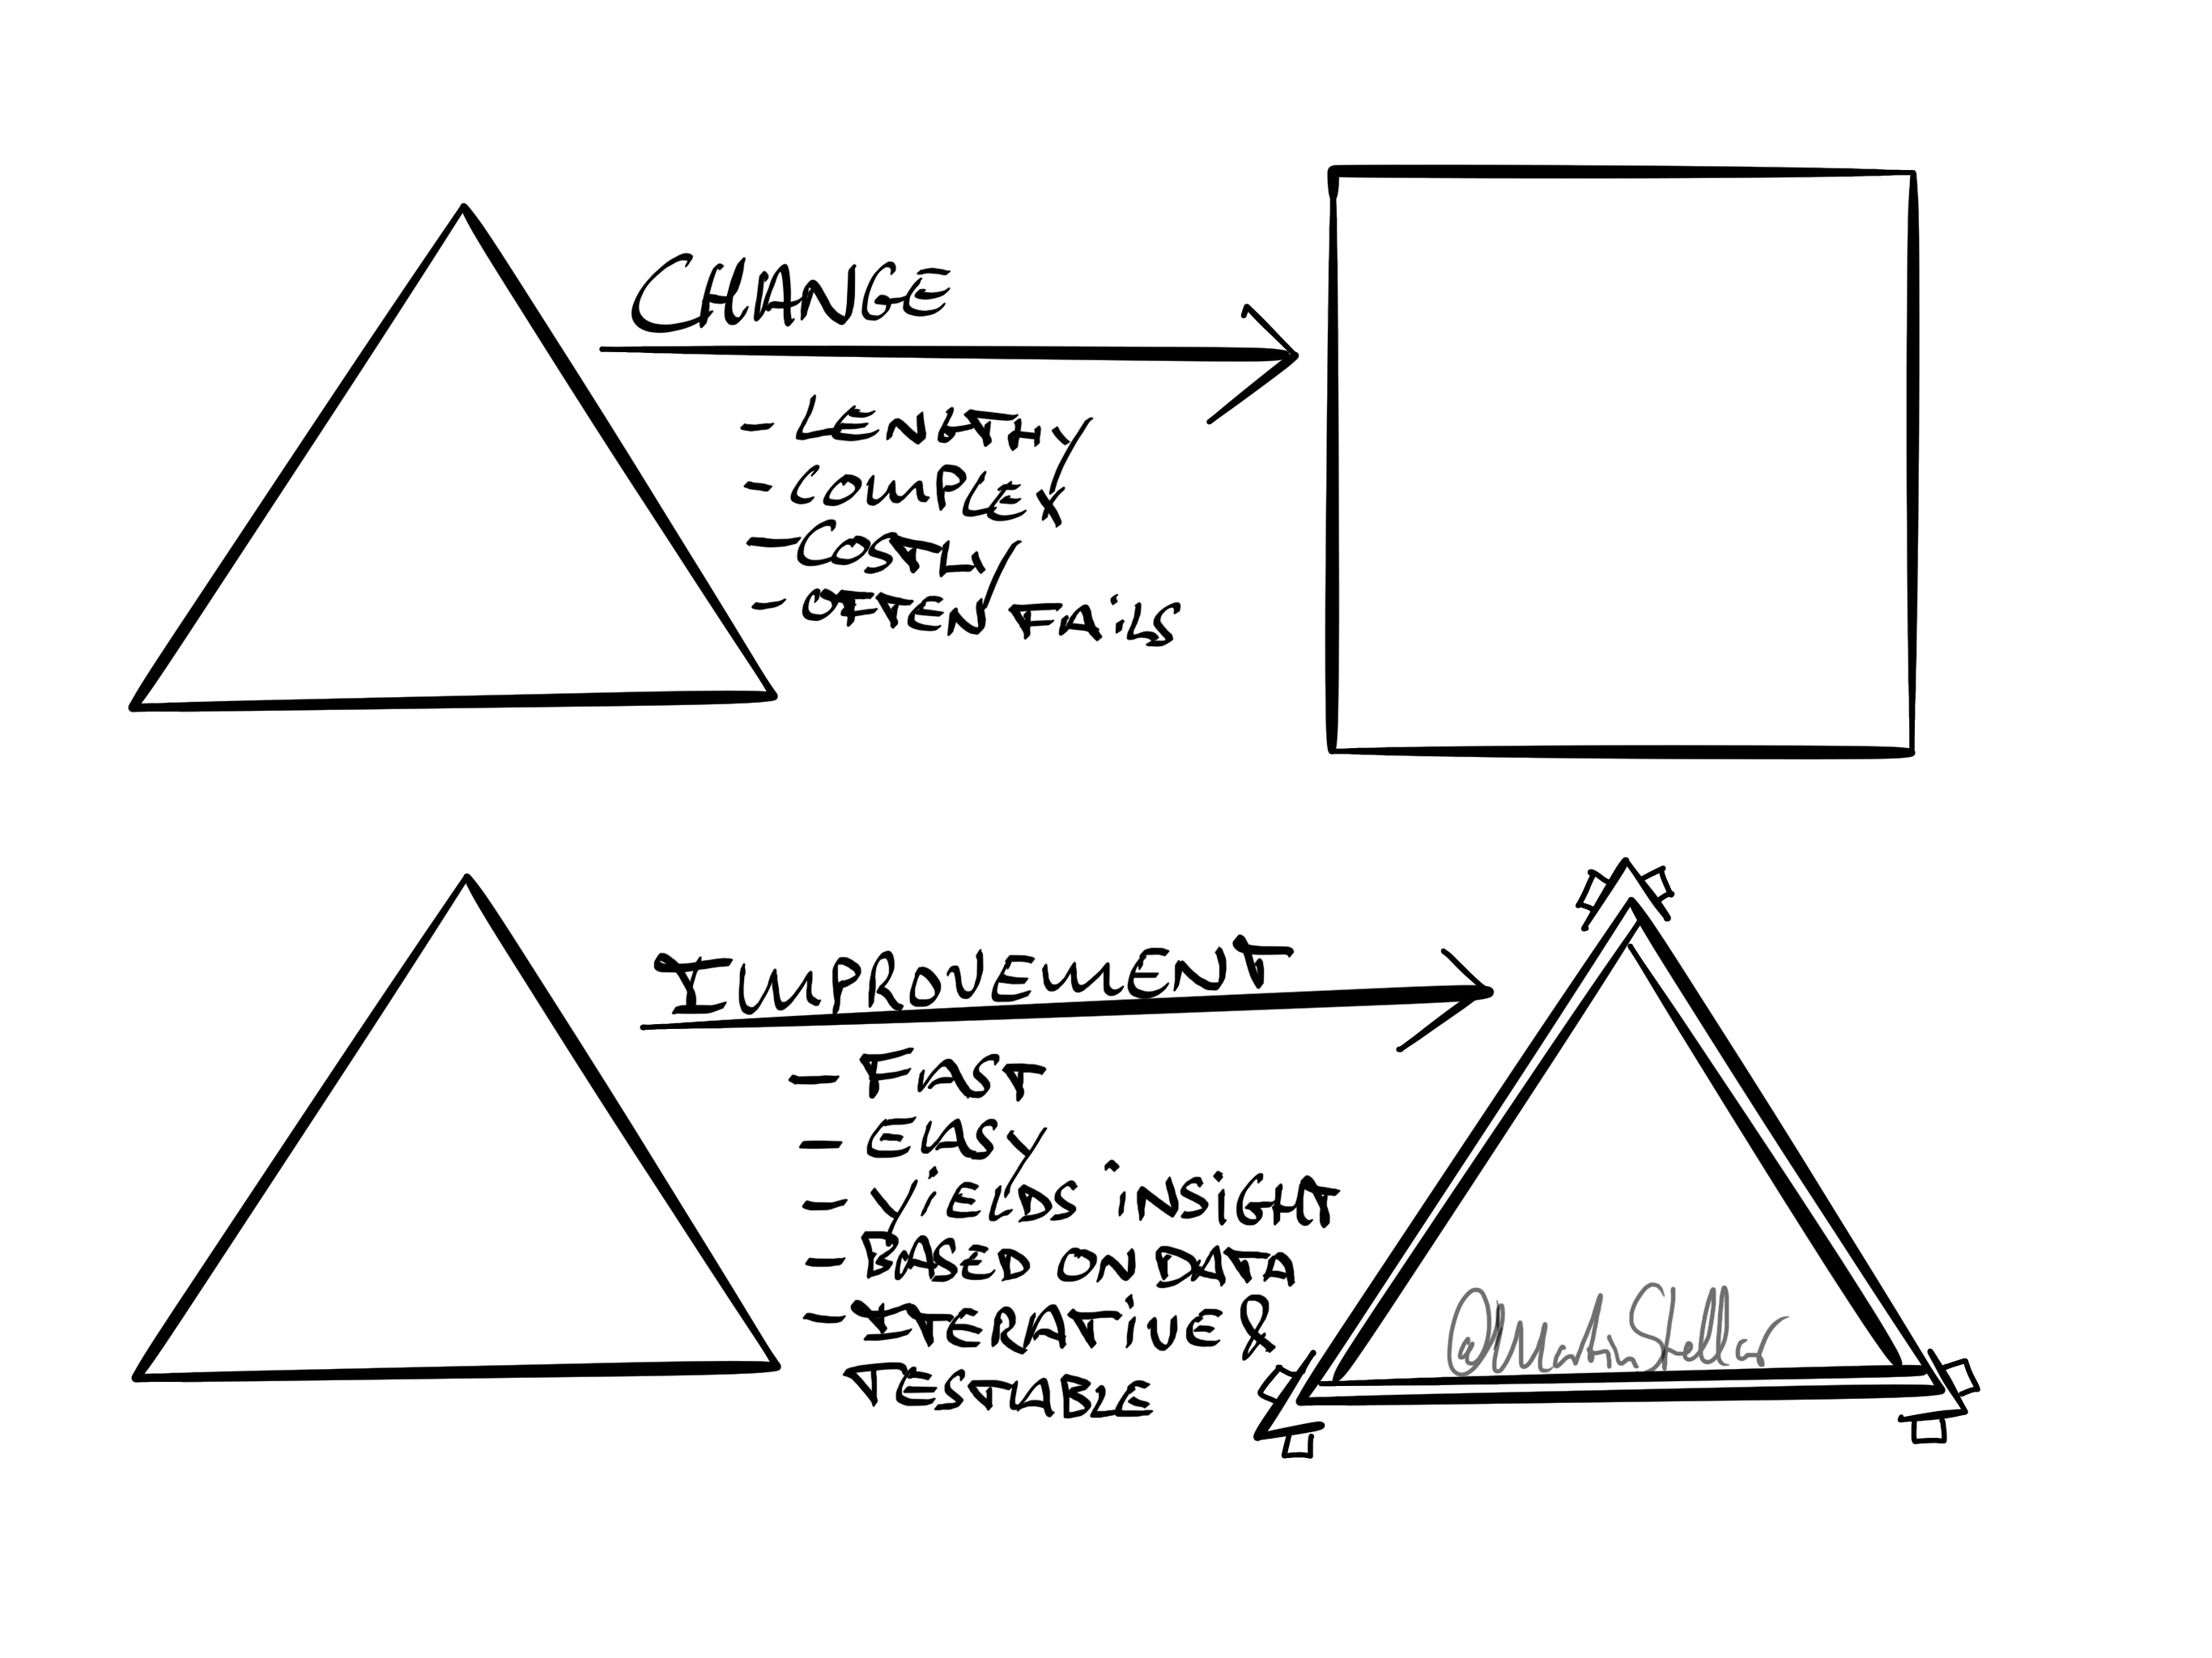 CHANGE
- LENGTHY
- COMPLEX
- COSTLY
- OFTEN FAiLS
IMPROVEMENT
- FAST
- EASY
- YiELDS iNSiGHT
- BASED ON DATA
- ITERATiVE &
TESTABLE
@MartinStellar